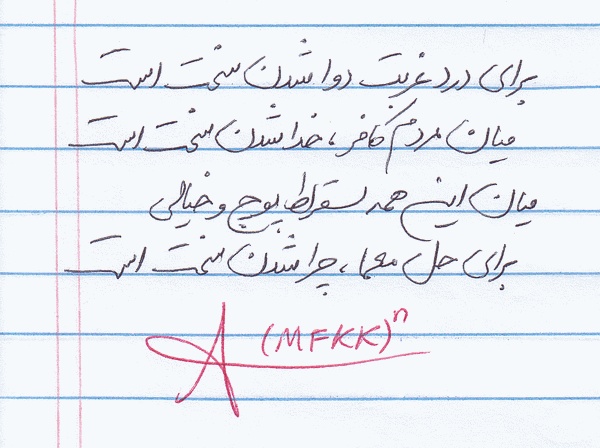 برای درد غربت دوا شدن سخت است
میان مردم کافر، خدا شدن سخت است
میان این همه سقراط پوچ و خیالی
برای حل معما، چرا شدن سخت است
(MFKK)ⁿ